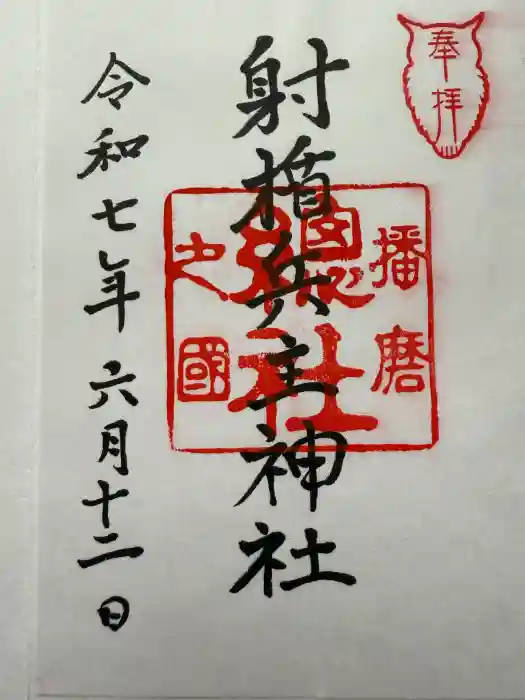 奉拝
射楯兵主神社
播磨
之國
總社
令和七年六月十二日